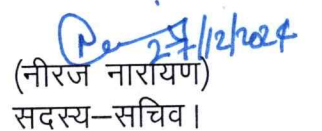 27/12/2024
(नीरज नारायण)
सदस्य–सचिव।